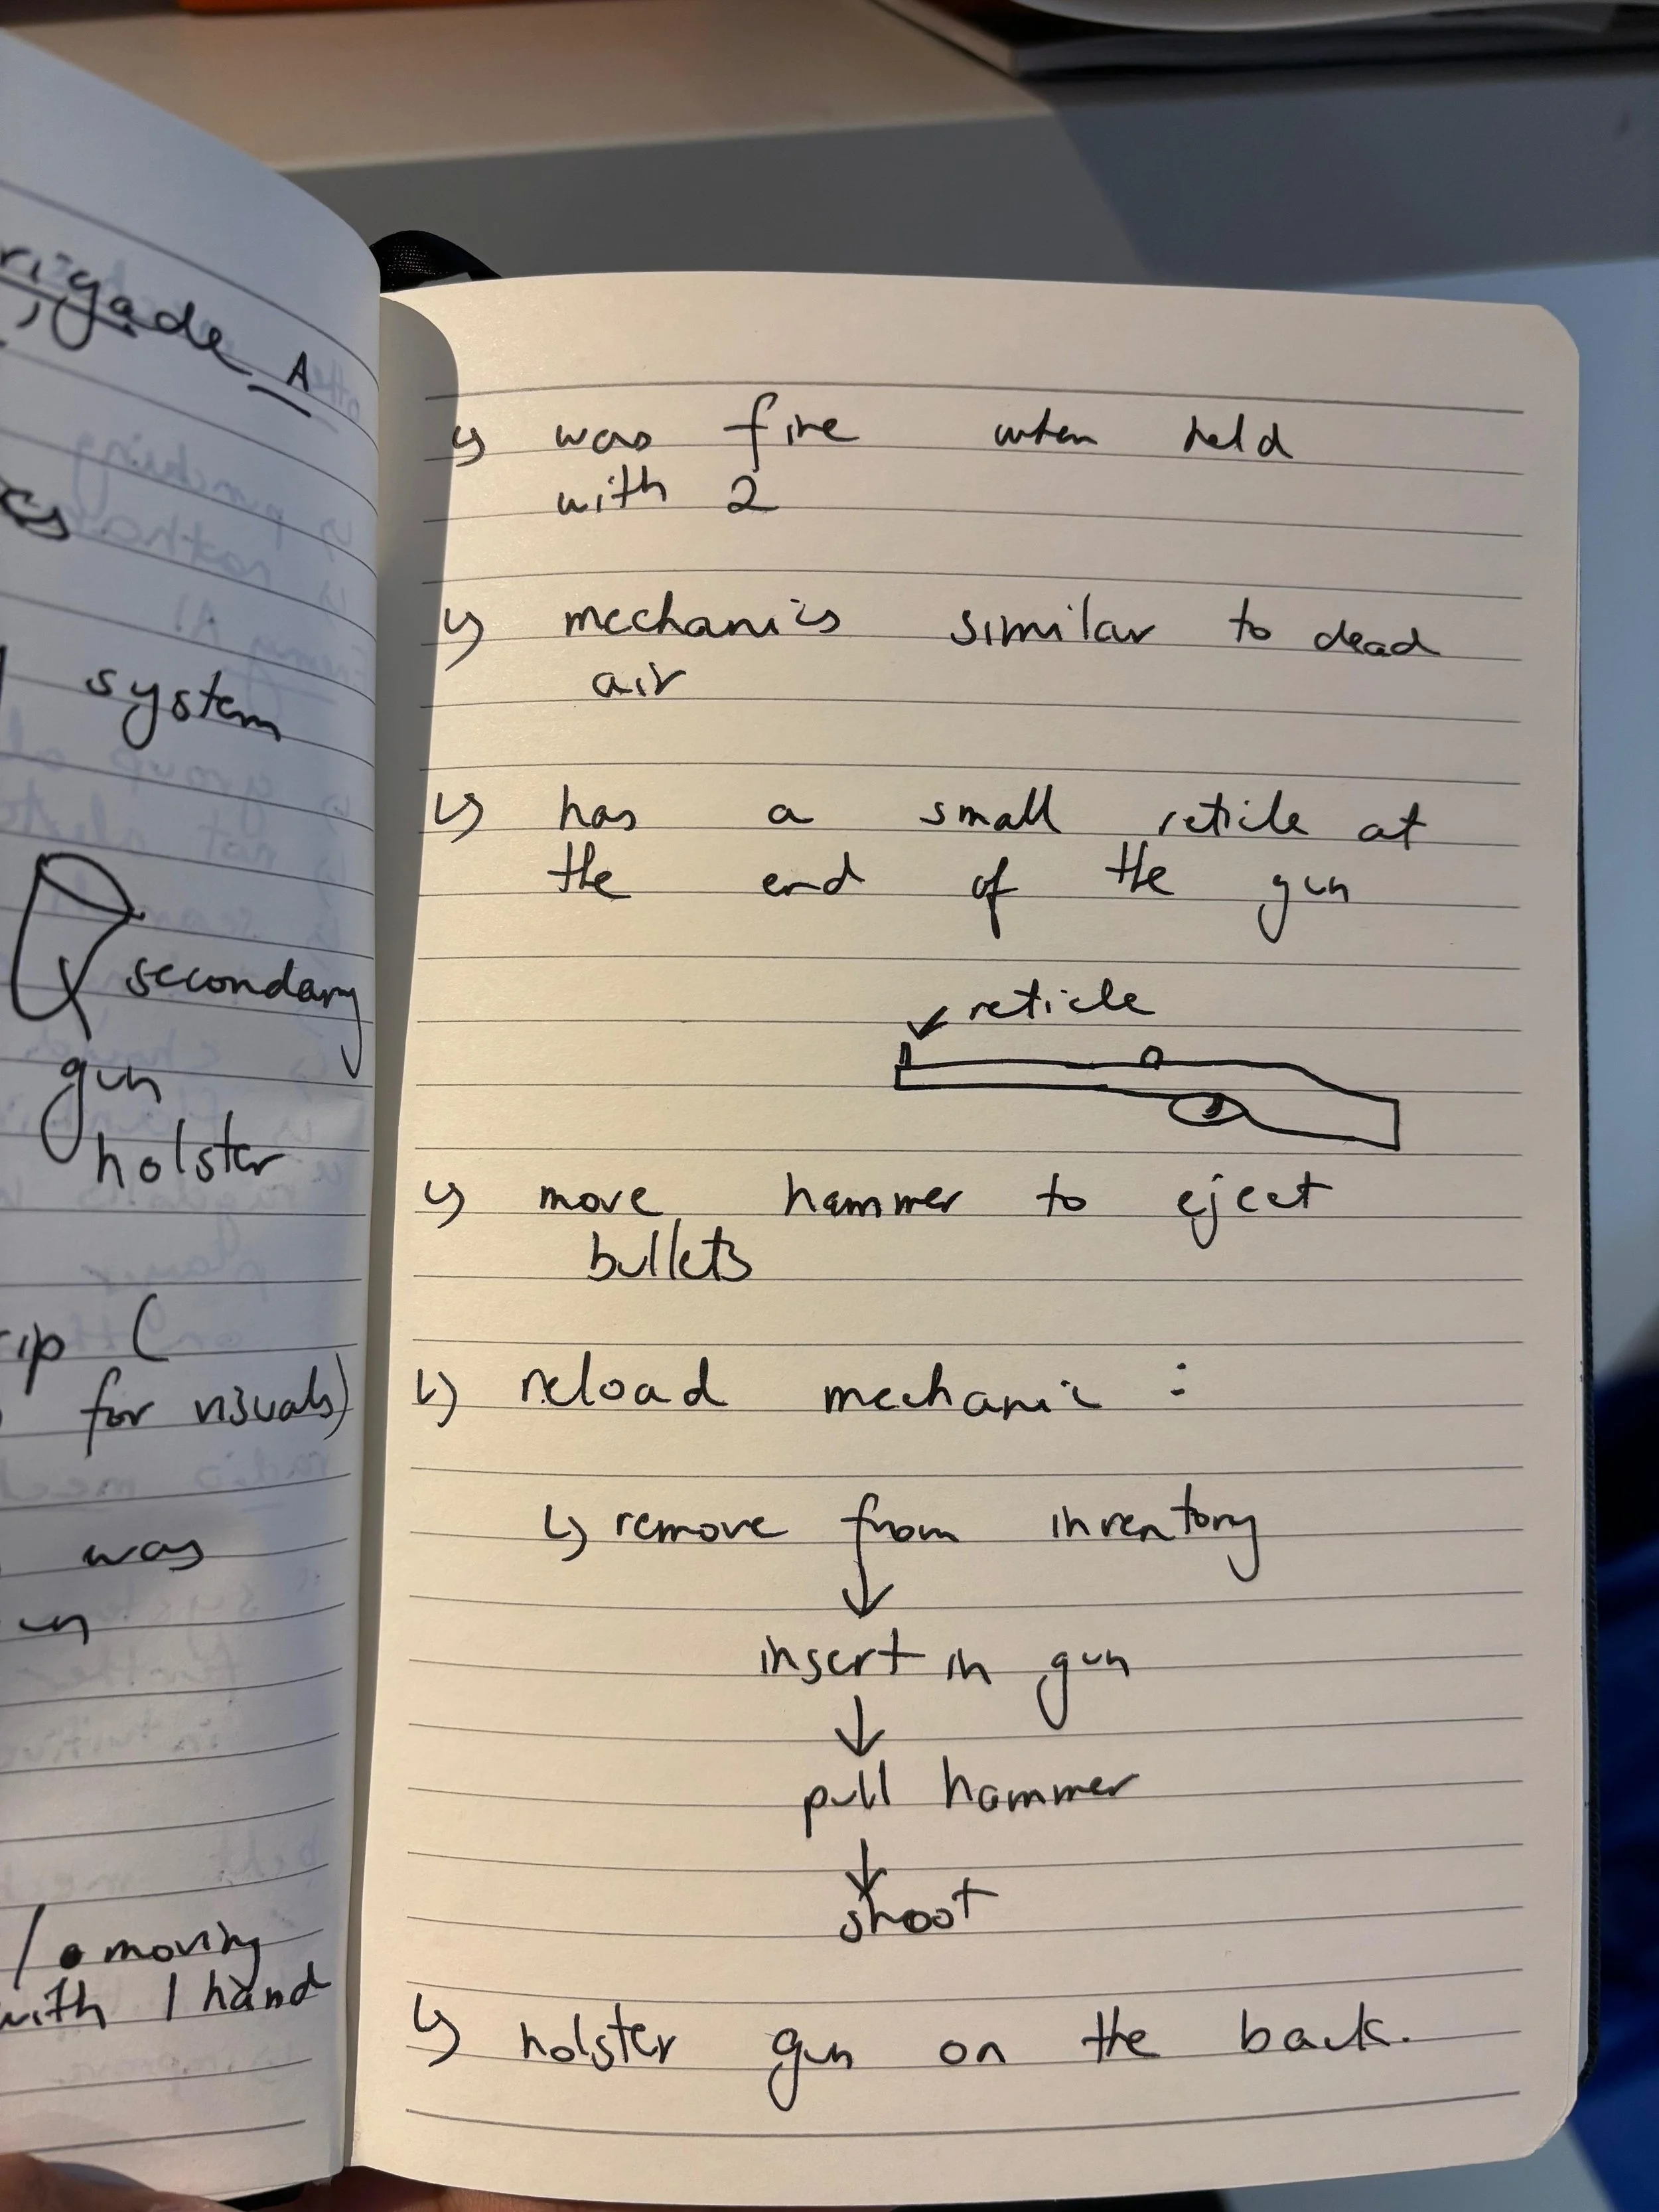 rigade A
cs
system
secondary
gun
holster
rip (
for visuals)
was
un
/ moving
with 1 hand
↳ was fine when held
with 2
↳ mechanics similar to dead
air
↳ has a small reticle at
the end of the gun
reticle
↳ move hammer to eject
bullets
↳ reload mechanic :
↳ remove from inventory
↓
insert in gun
↓
pull hammer
↓
shoot
↳ holster gun on the back.